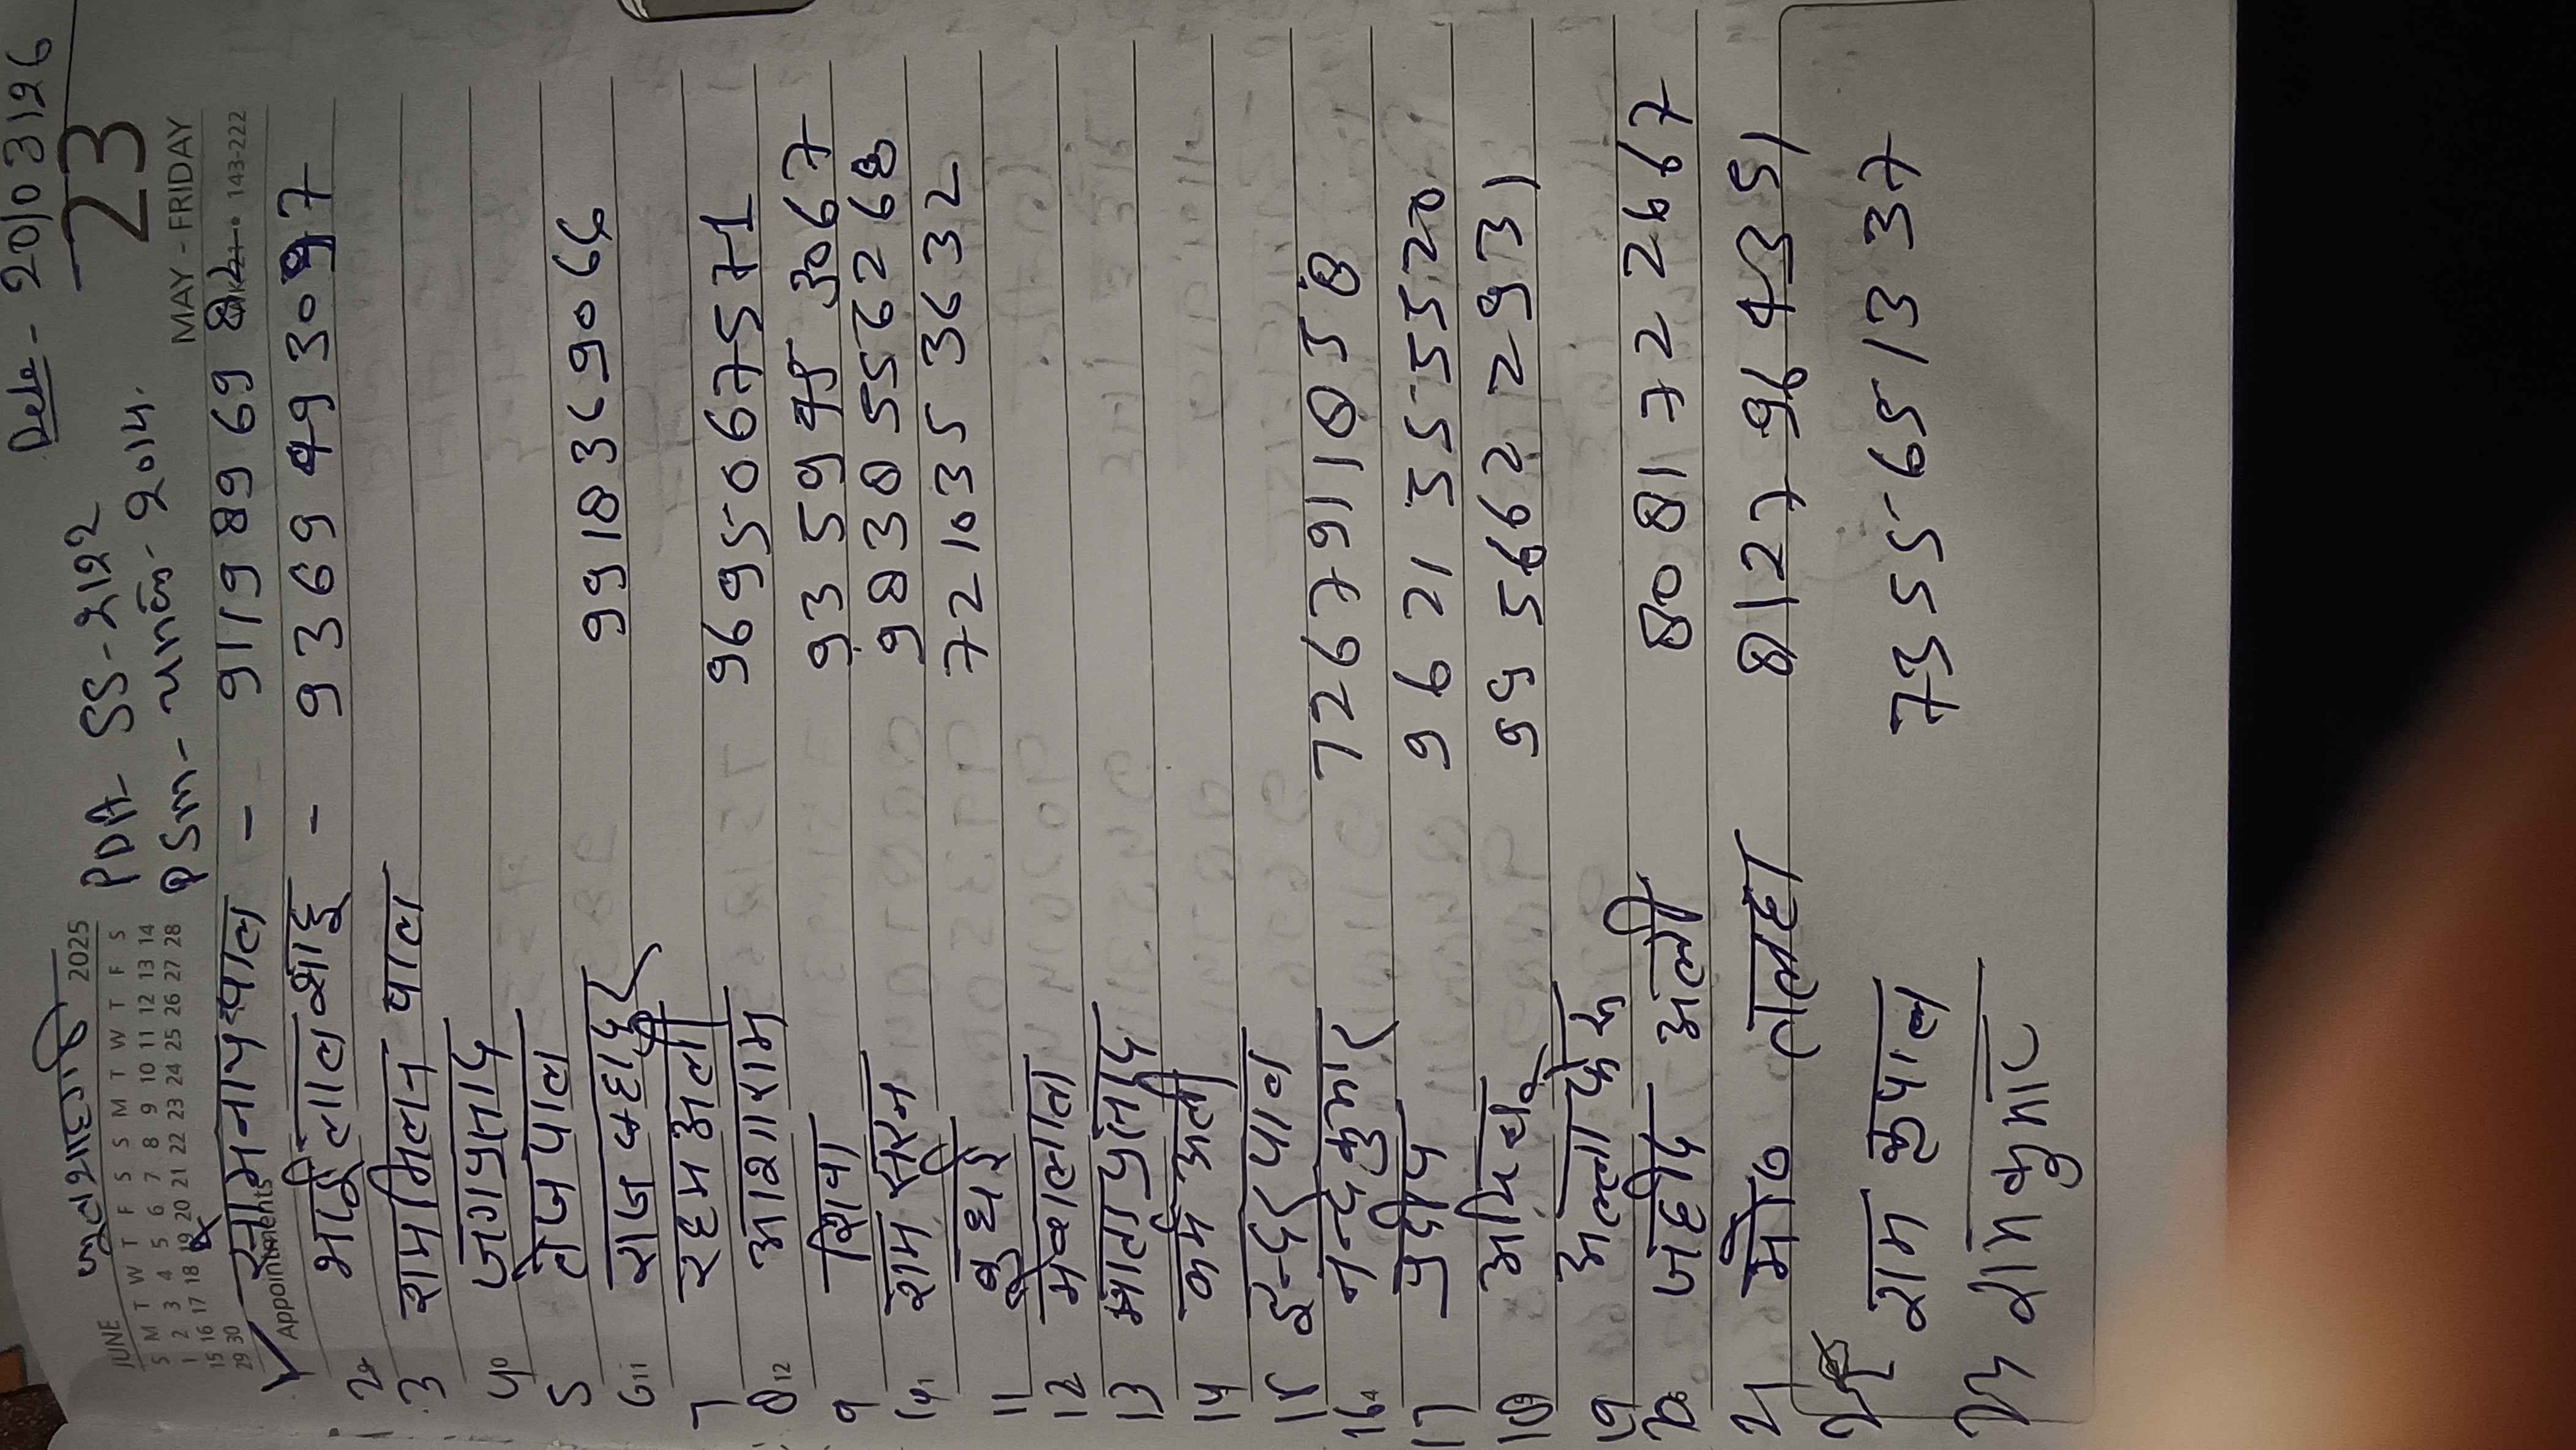 Date - 20/03/26
JUNE 2025
PDA- SS-2122
23
S M T W T F S S M T W T F S S M T W T F S
1 2 3 4 5 6 7 8 9 10 11 12 13 14
MAY - FRIDAY
15 16 17 18 19 20 21 22 23 24 25 26 27 28
29 30
143-222
Appointments
- 9119896984
2 - 9369493097
3 राममिलन पाल
4 जगप्रसाद
5 तेजपाल
6 राज बहादुर 9918369066
7 रहमअली
8 आशाराम 9695067571
9 शिवा 9359453067
राम सरन 98380556268
11 बुधई 7210353632
12 मेवालाल
13 माता प्रसाद
14
15 इन्दरपाल
16 नन्दकुमार 7267911058
17 प्रदीप 9621355520
18 9956622931
19
20 जहीद अली 8081722667
21 मो0 8127964351
22 राम कृपाल 7355651337
23 रामकुमार